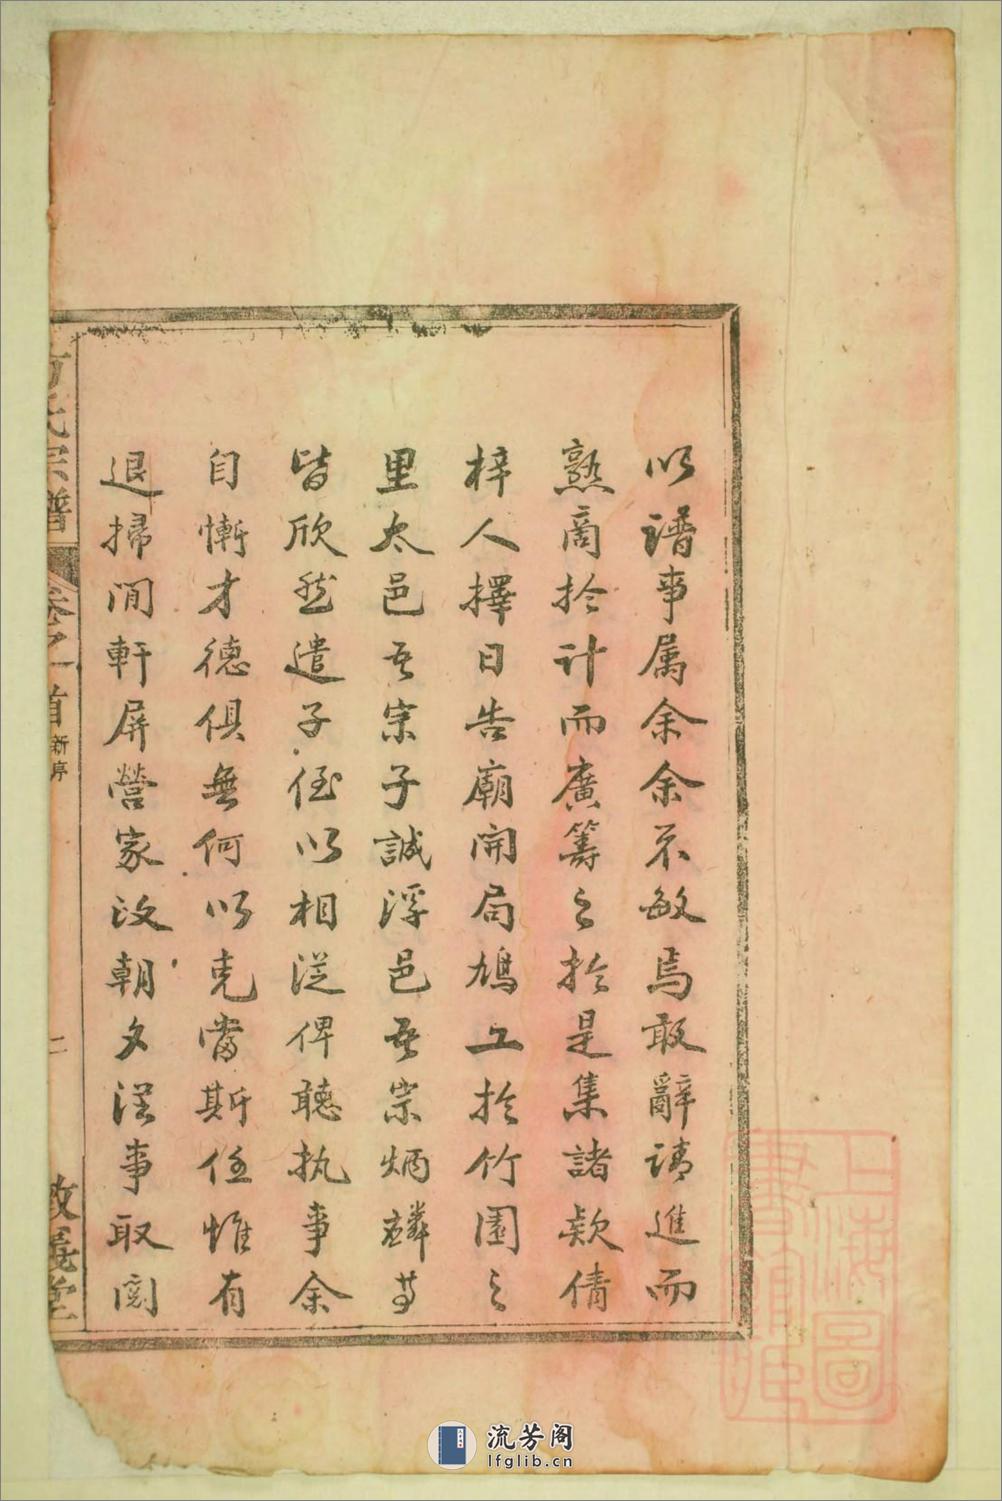 以譜事属余余不敏焉敢辭請進而
熟商於計而廣籌之於是集諸欵倩
梓人擇日告廟開局鳩工於竹園之
里太邑吾宗子誠浮邑吾宗炳麟等
皆欣然遣子侄以相從俾聽執事余
自慚才德俱無何以克當斯任惟有
退掃閒軒屏營家政朝夕從事取閱
方氏宗譜
卷之首
新序
二
敦義堂
上海圖書館藏
流芳阁
lfglib.cn